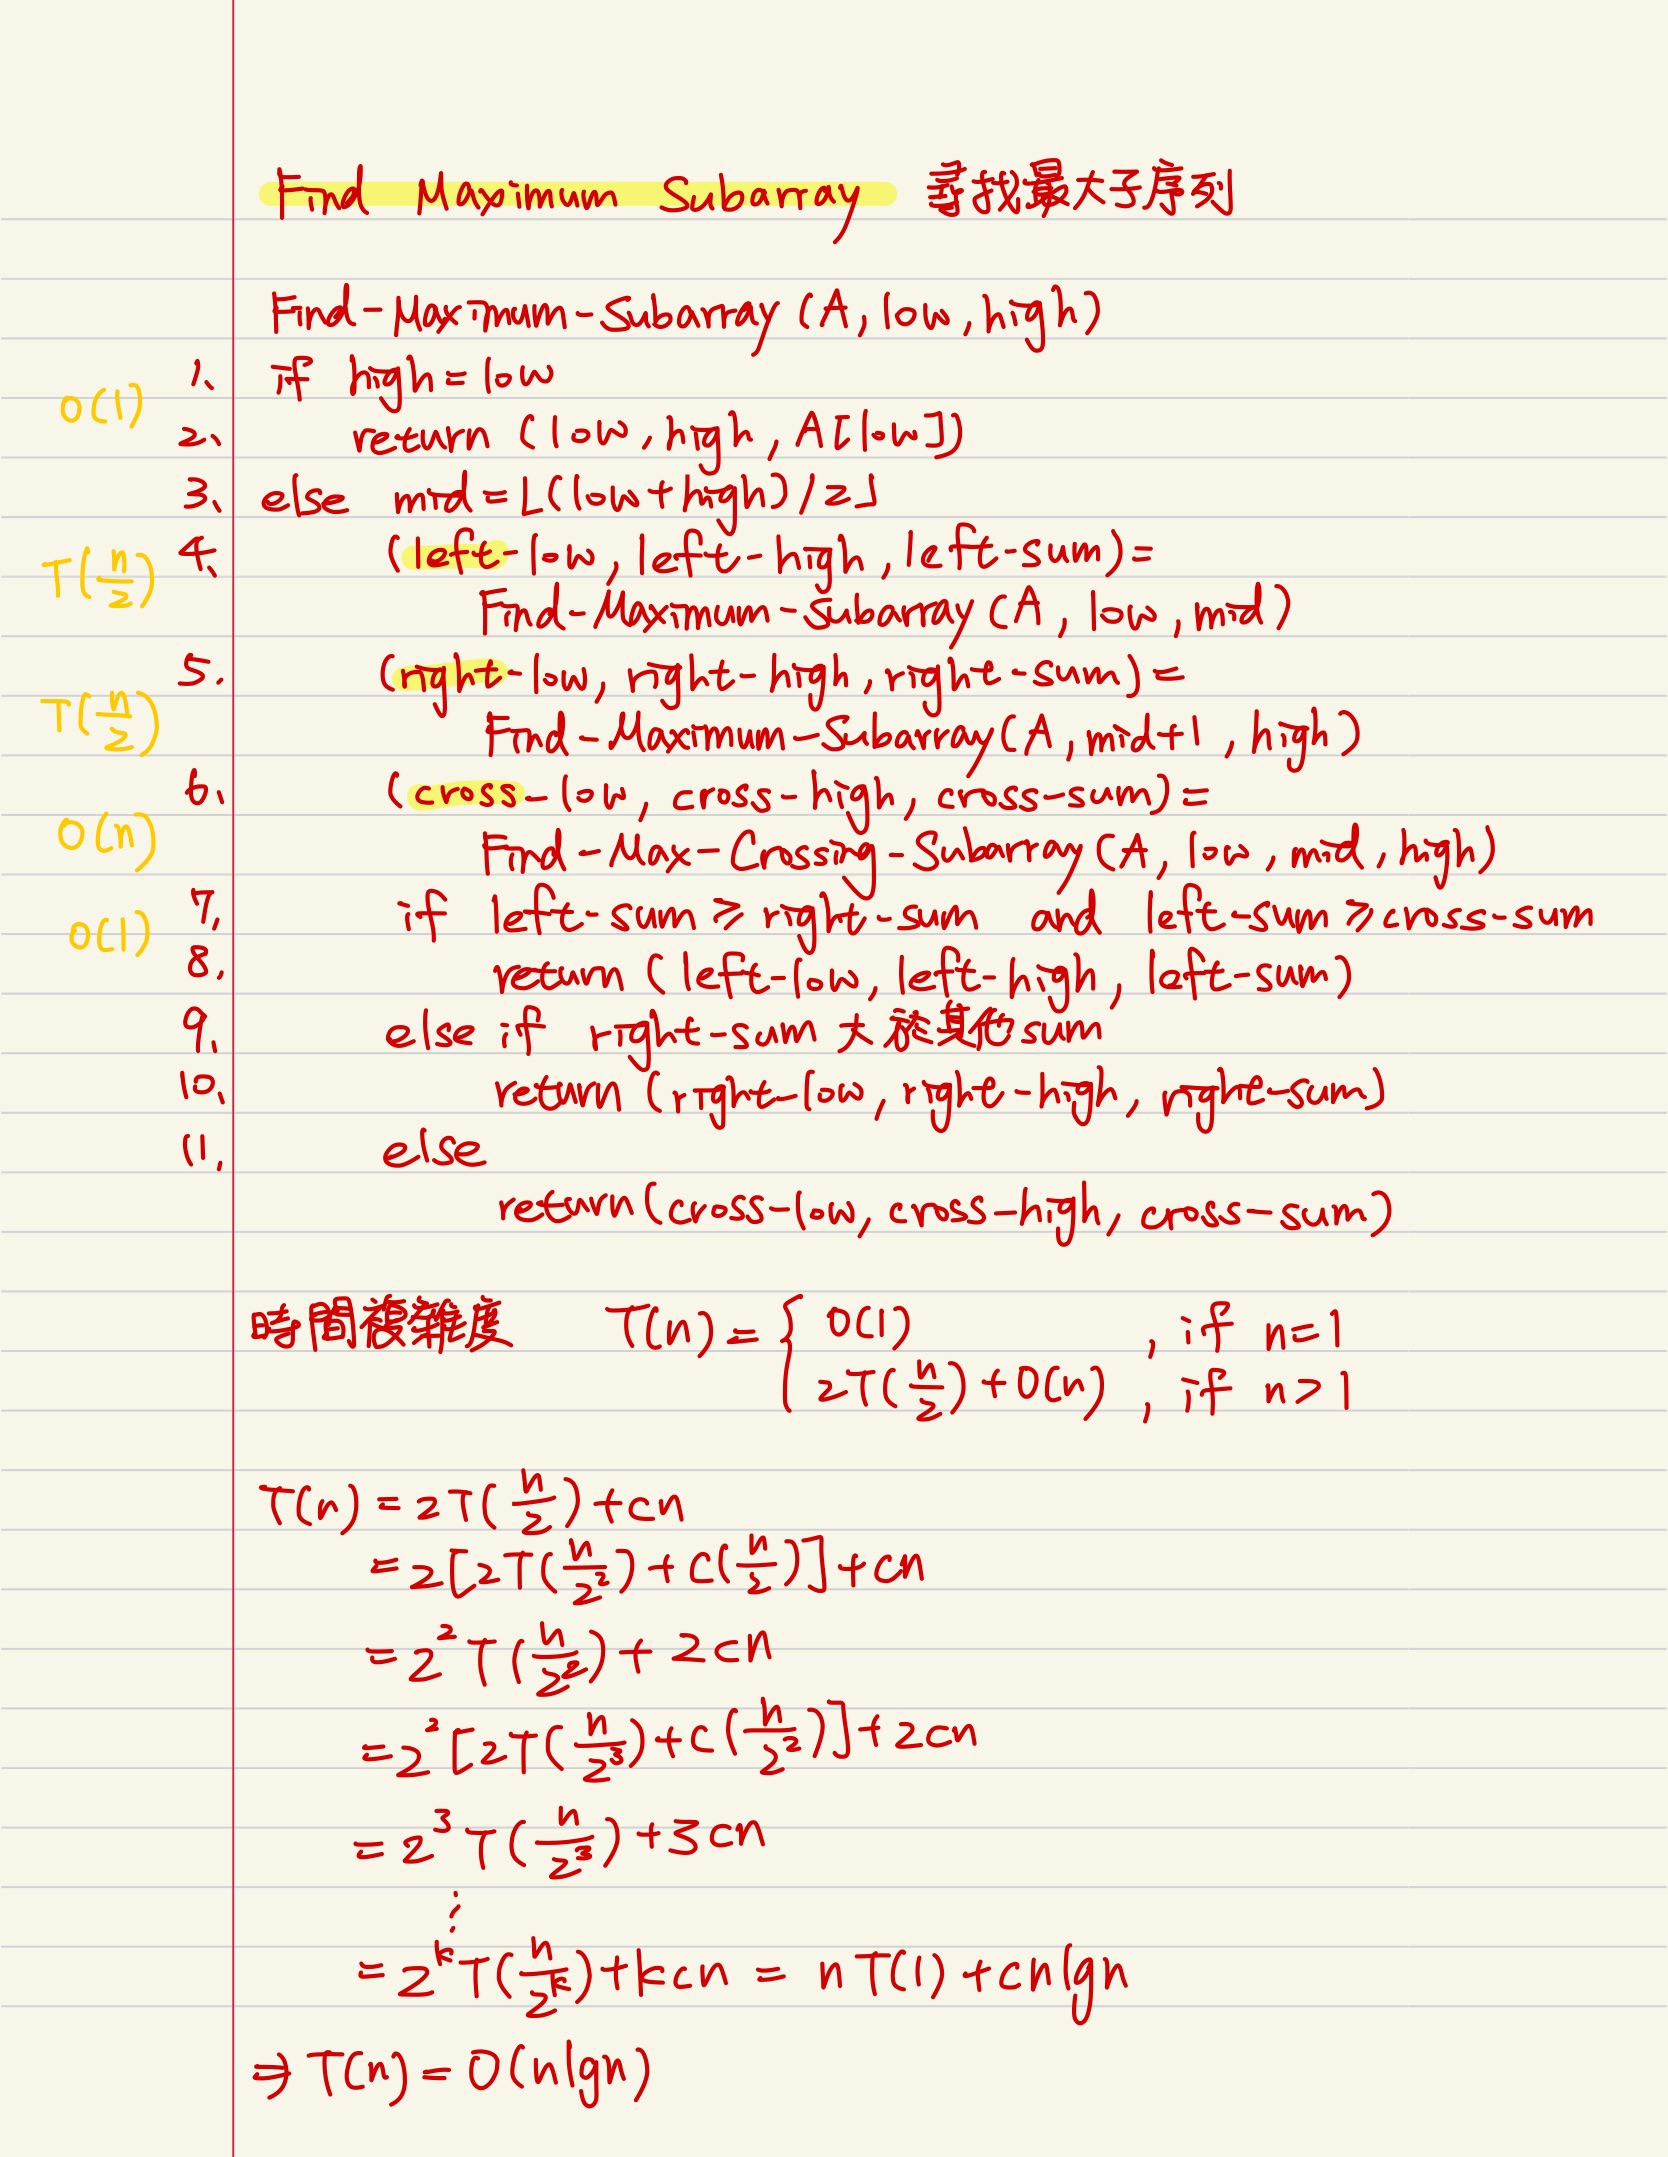 Find Maximum Subarray 尋找最大子序列
Find-Maximum-Subarray (A, low, high)
O(1) 1、 if high = low
2、 return (low, high, A[low])
3、 else mid = ⌊(low+high)/2⌋
T(n/2) 4、 (left-low, left-high, left-sum) =
Find-Maximum-Subarray (A, low, mid)
5. (right-low, right-high, right-sum) =
T(n/2) Find-Maximum-Subarray (A, mid+1, high)
6. (cross-low, cross-high, cross-sum) =
O(n) Find-Max-Crossing-Subarray (A, low, mid, high)
O(1) 7. if left-sum ≥ right-sum and left-sum ≥ cross-sum
8. return (left-low, left-high, left-sum)
9. else if right-sum 大於其他 sum
10. return (right-low, right-high, right-sum)
11. else
return (cross-low, cross-high, cross-sum)
時間複雜度 T(n) = { O(1) , if n=1
2T(n/2) + O(n) , if n>1
T(n) = 2T(n/2) + cn
= 2[2T(n/2²) + c(n/2)] + cn
= 2² T(n/2²) + 2cn
= 2² [2T(n/2³) + c(n/2²)] + 2cn
= 2³ T(n/2³) + 3cn
⋮
= 2ᵏ T(n/2ᵏ) + kcn = nT(1) + cnlgn
⇒ T(n) = O(nlgn)